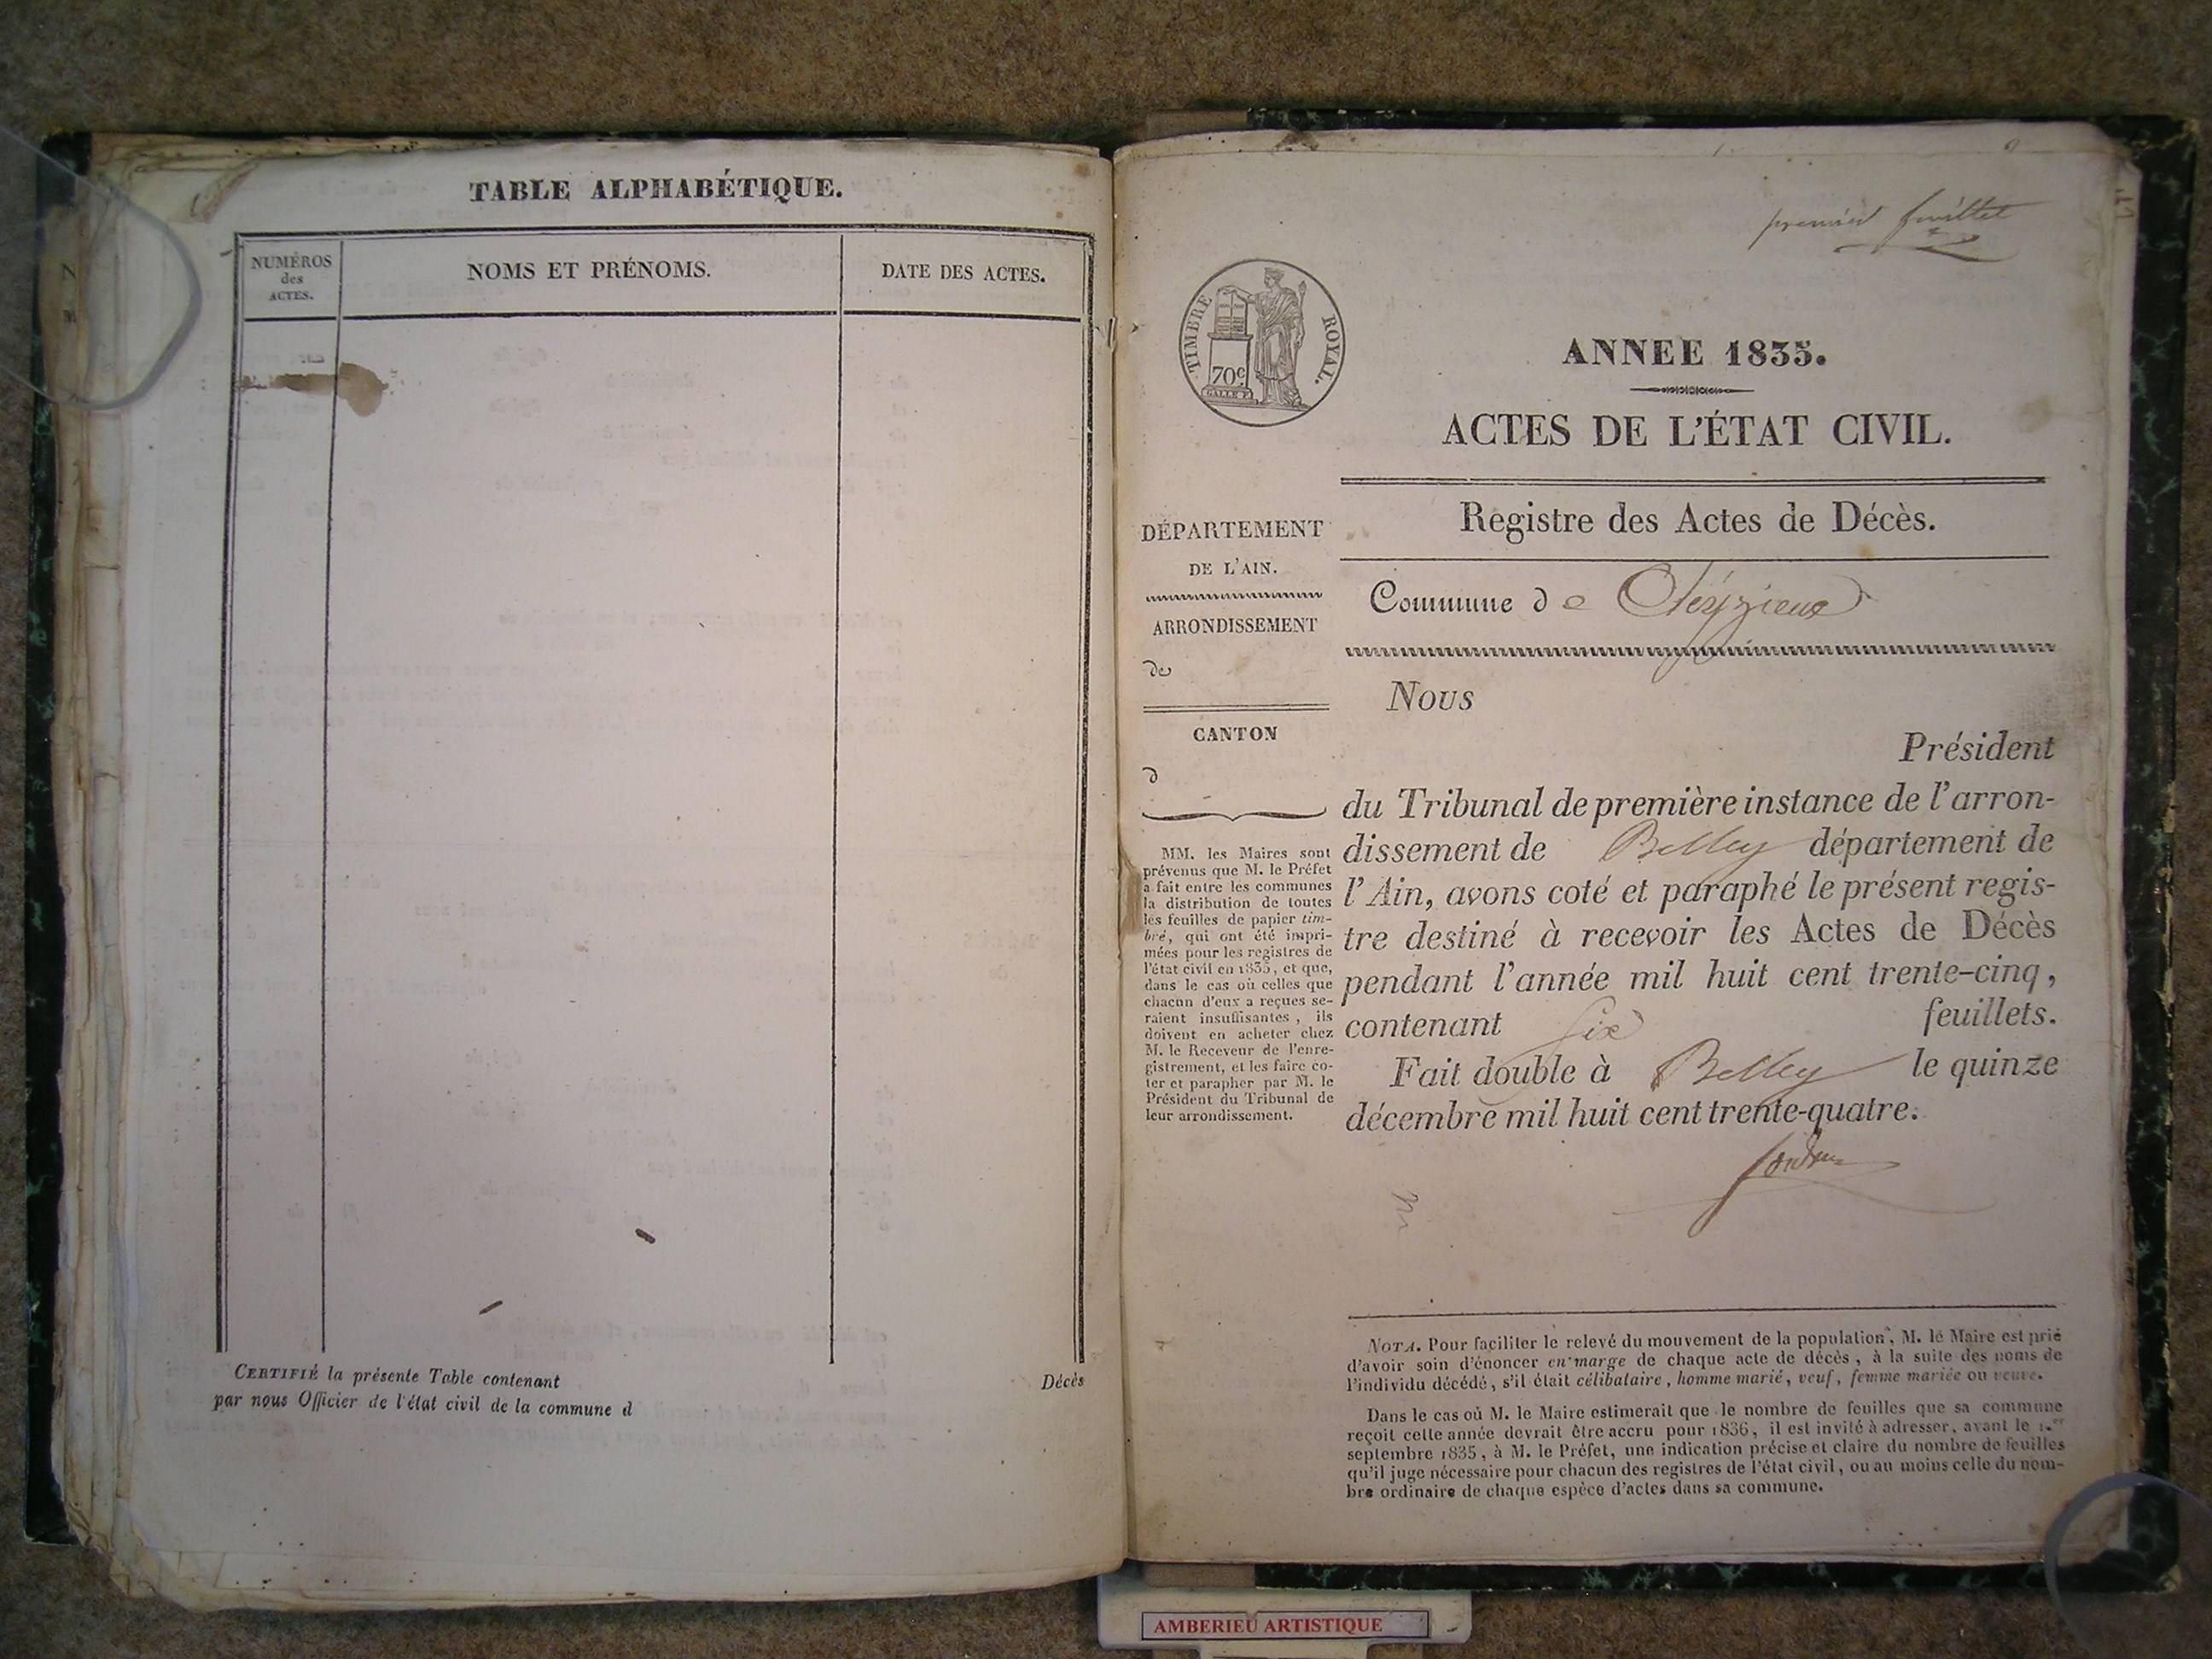 TABLE ALPHABÉTIQUE.
NUMÉROS
des
ACTES.
NOMS ET PRÉNOMS.
DATE DES ACTES.
CERTIFIÉ la présente Table contenant Décès
par nous Officier de l'état civil de la commune d
premier feuillet
TIMBRE ROYAL.
70c
GALLE F.
ANNEE 1835.
ACTES DE L'ÉTAT CIVIL.
Registre des Actes de Décès.
DÉPARTEMENT
DE L'AIN.
ARRONDISSEMENT
de
CANTON
d
MM. les Maires sont
prévenus que M. le Préfet
a fait entre les communes
la distribution de toutes
les feuilles de papier tim-
bré, qui ont été impri-
mées pour les registres de
l'état civil en 1835, et que,
dans le cas où celles que
chacun d'eux a reçues se-
raient insuffisantes, ils
doivent en acheter chez
M. le Receveur de l'enre-
gistrement, et les faire co-
ter et parapher par M. le
Président du Tribunal de
leur arrondissement.
Commune de Cleyzieux
Nous
Président
du Tribunal de première instance de l'arron-
dissement de Belley département de
l'Ain, avons coté et paraphé le présent regis-
tre destiné à recevoir les Actes de Décès
pendant l'année mil huit cent trente-cinq,
contenant six feuillets.
Fait double à Belley le quinze
décembre mil huit cent trente-quatre.
NOTA. Pour faciliter le relevé du mouvement de la population, M. le Maire est prié
d'avoir soin d'énoncer en marge de chaque acte de décès, à la suite des noms de
l'individu décédé, s'il était célibataire, homme marié, veuf, femme mariée ou veuve.
Dans le cas où M. le Maire estimerait que le nombre de feuilles que sa commune
reçoit cette année devrait être accru pour 1836, il est invité à adresser, avant le 1.er
septembre 1835, à M. le Préfet, une indication précise et claire du nombre de feuilles
qu'il juge nécessaire pour chacun des registres de l'état civil, ou au moins celle du nom-
bre ordinaire de chaque espèce d'actes dans sa commune.
AMBERIEU ARTISTIQUE